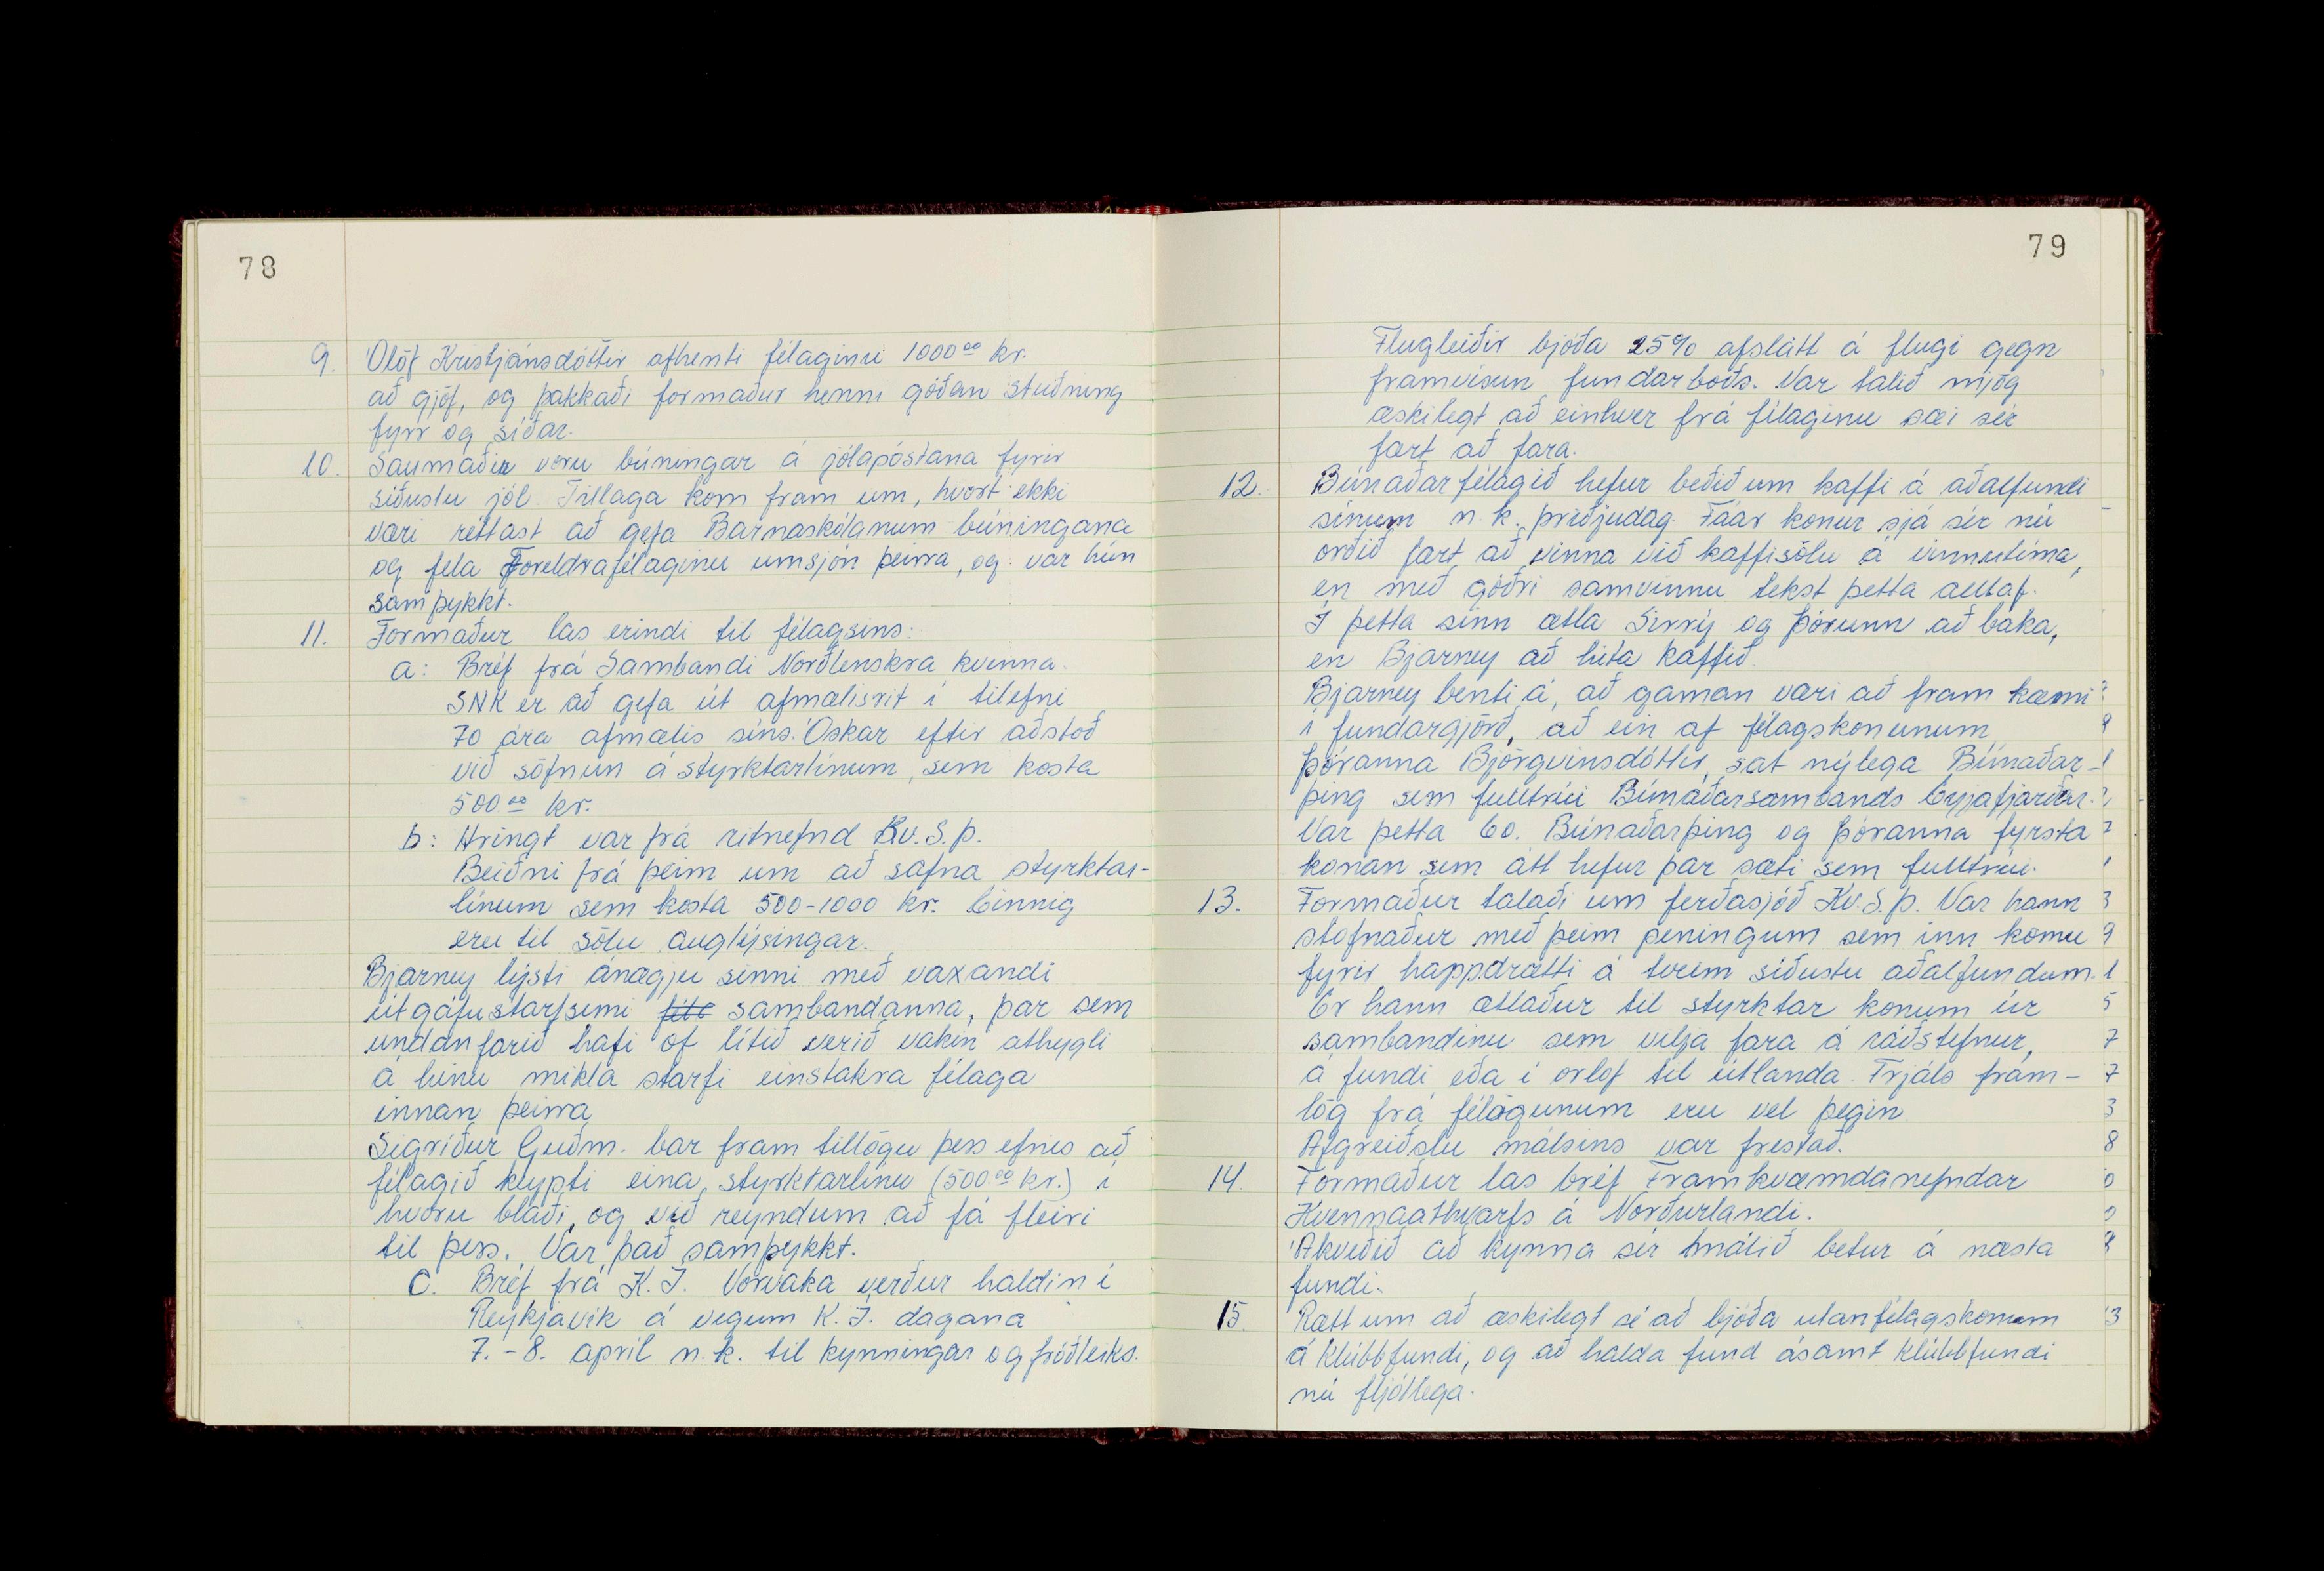 78
9. Ólöf Kristjánsdóttir afhenti félaginu 1000.00 kr.
að gjöf, og þakkaði formaður henni góðan stuðning
fyrr og síðar.
10. Saumaðir voru búningar á jólapóstana fyrir
síðustu jól. Tillaga kom fram um, hvort ekki
væri réttast að gefa Barnaskólanum búningana
og fela Foreldrafélaginu umsjón þeirra, og var hún
samþykkt.
11. Formaður las erindi til félagsins:
a: Bréf frá Sambandi Norðlenskra kvenna.
SNK er að gefa út afmælisrit í tilefni
70 ára afmælis síns. Óskar eftir aðstoð
við söfnun á styrktarlínum, sem kosta
500.00 kr.
b: Hringt var frá ritnefnd Kv.S.Þ.
Beiðni frá þeim um að safna styrktar-
línum sem kosta 500-1000 kr. Einnig
eru til sölu auglýsingar.
Bjarney lýsti ánægju sinni með vaxandi
útgáfustarfsemi sambandanna, þar sem
undanfarið hafi of lítið verið vakin athygli
á hinu mikla starfi einstakra félaga
innan þeirra
Sigríður Guðm. bar fram tillögu þess efnis að
félagið keypti eina styrktarlínu (500.00 kr.) í
hvoru blaði, og við reyndum að fá fleiri
til þess. Var það samþykkt.
C. Bréf frá K.Í. Vorvaka verður haldin í
Reykjavík á vegum K.Í. dagana
7.-8. apríl n.k. til kynningar og fróðleiks.
79
Flugleiðir bjóða 25% afslátt á flugi gegn
framvísun fundarboðs. Var talið mjög
æskilegt að einhver frá félaginu sæi sér
fært að fara.
12. Búnaðarfélagið hefur beðið um kaffi á aðalfundi
sínum n.k. þriðjudag. Fáar konur sjá sér nú
orðið fært að vinna við kaffisölu á vinnutíma,
en með góðri samvinnu tekst þetta alltaf.
Í þetta sinn ætla Sirrý og Þórunn að baka,
en Bjarney að hita kaffið.
Bjarney benti á, að gaman væri að fram kæmi
í fundargjörð, að ein af félagskonunum
Þóranna Björgvinsdóttir, sat nýlega Búnaðar-
þing sem fulltrúi Búnaðarsambands Eyjafjarðar.
Var þetta 60. Búnaðarþing og Þóranna fyrsta
konan sem átt hefur þar sæti sem fulltrúi.
13. Formaður talaði um ferðasjóð Kv.S.Þ. Var hann
stofnaður með þeim peningum sem inn komu
fyrir happdrætti á tveim síðustu aðalfundum.
Er hann ætlaður til styrktar konum úr
sambandinu sem vilja fara á ráðstefnur,
á fundi eða í orlof til útlanda. Frjáls fram-
lög frá félögunum eru vel þegin.
Afgreiðslu málsins var frestað.
14. Formaður las bréf Framkvæmdanefndar
Kvennaathvarfs á Norðurlandi.
Ákveðið að kynna sér málið betur á næsta
fundi.
15. Rætt um að æskilegt sé að bjóða utanfélagskonum
á klúbbfundi, og að halda fund ásamt klúbbfundi
nú fljótlega.